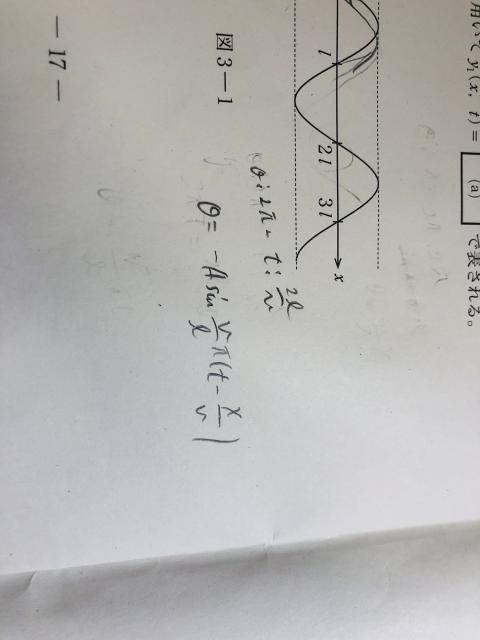 用いて y₁(x, t) = (a) で表される。
l 2l 3l x
図3－1
θ:2π = t:2l/v
θ = -A sin v/l π(t - x/v)
— 17 —